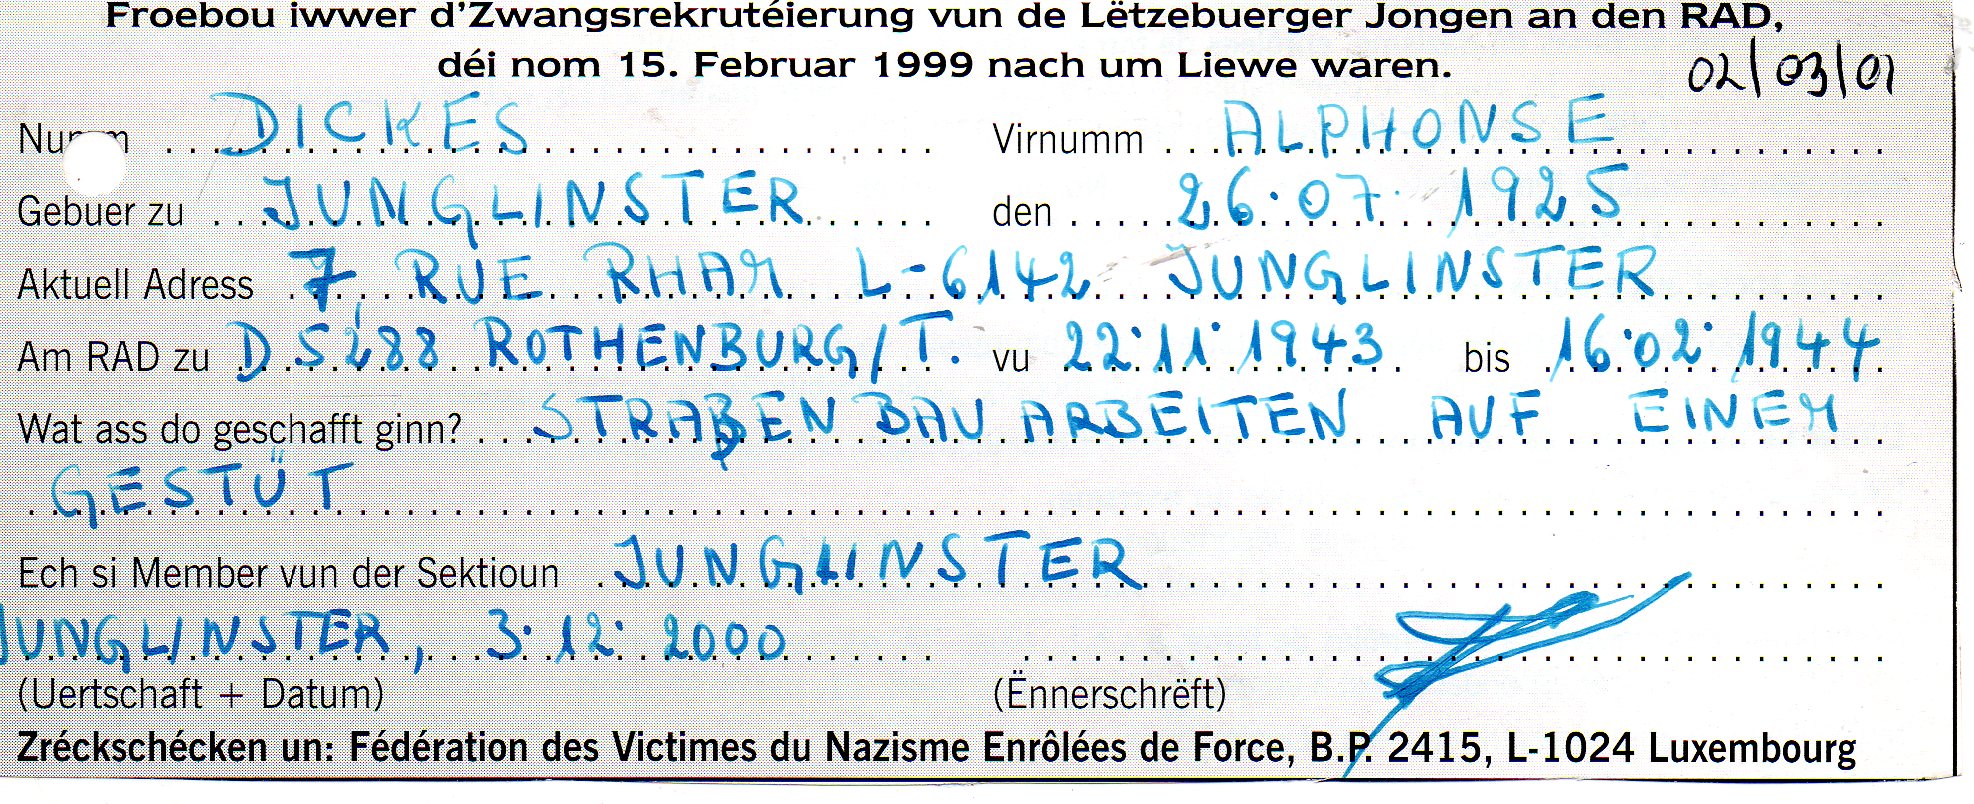 Froebou iwwer d'Zwangsrekrutéierung vun de Lëtzebuerger Jongen an den RAD,
déi nom 15. Februar 1999 nach um Liewe waren.
02/03/01
Numm DICKES Virnumm ALPHONSE
Gebuer zu JUNGLINSTER den 26.07.1925
Aktuell Adress 7, RUE RHAM L-6142 JUNGLINSTER
Am RAD zu D S 288 ROTHENBURG/T. vu 22.11.1943 bis 16.02.1944
Wat ass do geschafft ginn? STRAßEN BAU ARBEITEN AUF EINEM
GESTÜT
Ech si Member vun der Sektioun JUNGLINSTER
JUNGLINSTER, 3.12.2000
(Uertschaft + Datum) (Ënnerschrëft)
Zréckschécken un: Fédération des Victimes du Nazisme Enrôlées de Force, B.P. 2415, L-1024 Luxembourg